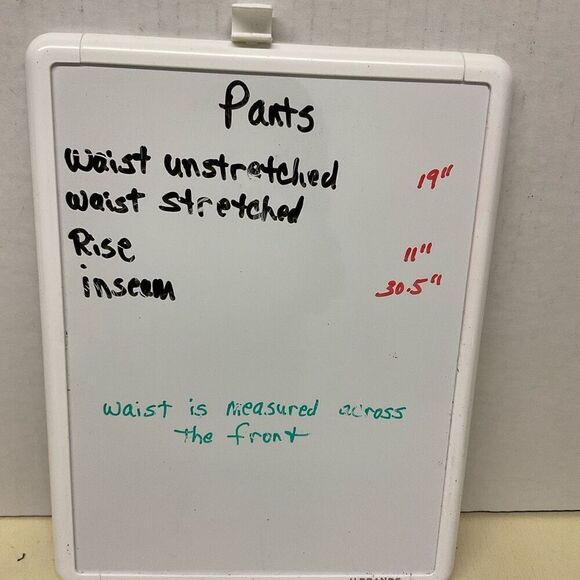 Pants
waist unstretched 19"
waist stretched
Rise 11"
inseam 30.5"
waist is measured across
the front